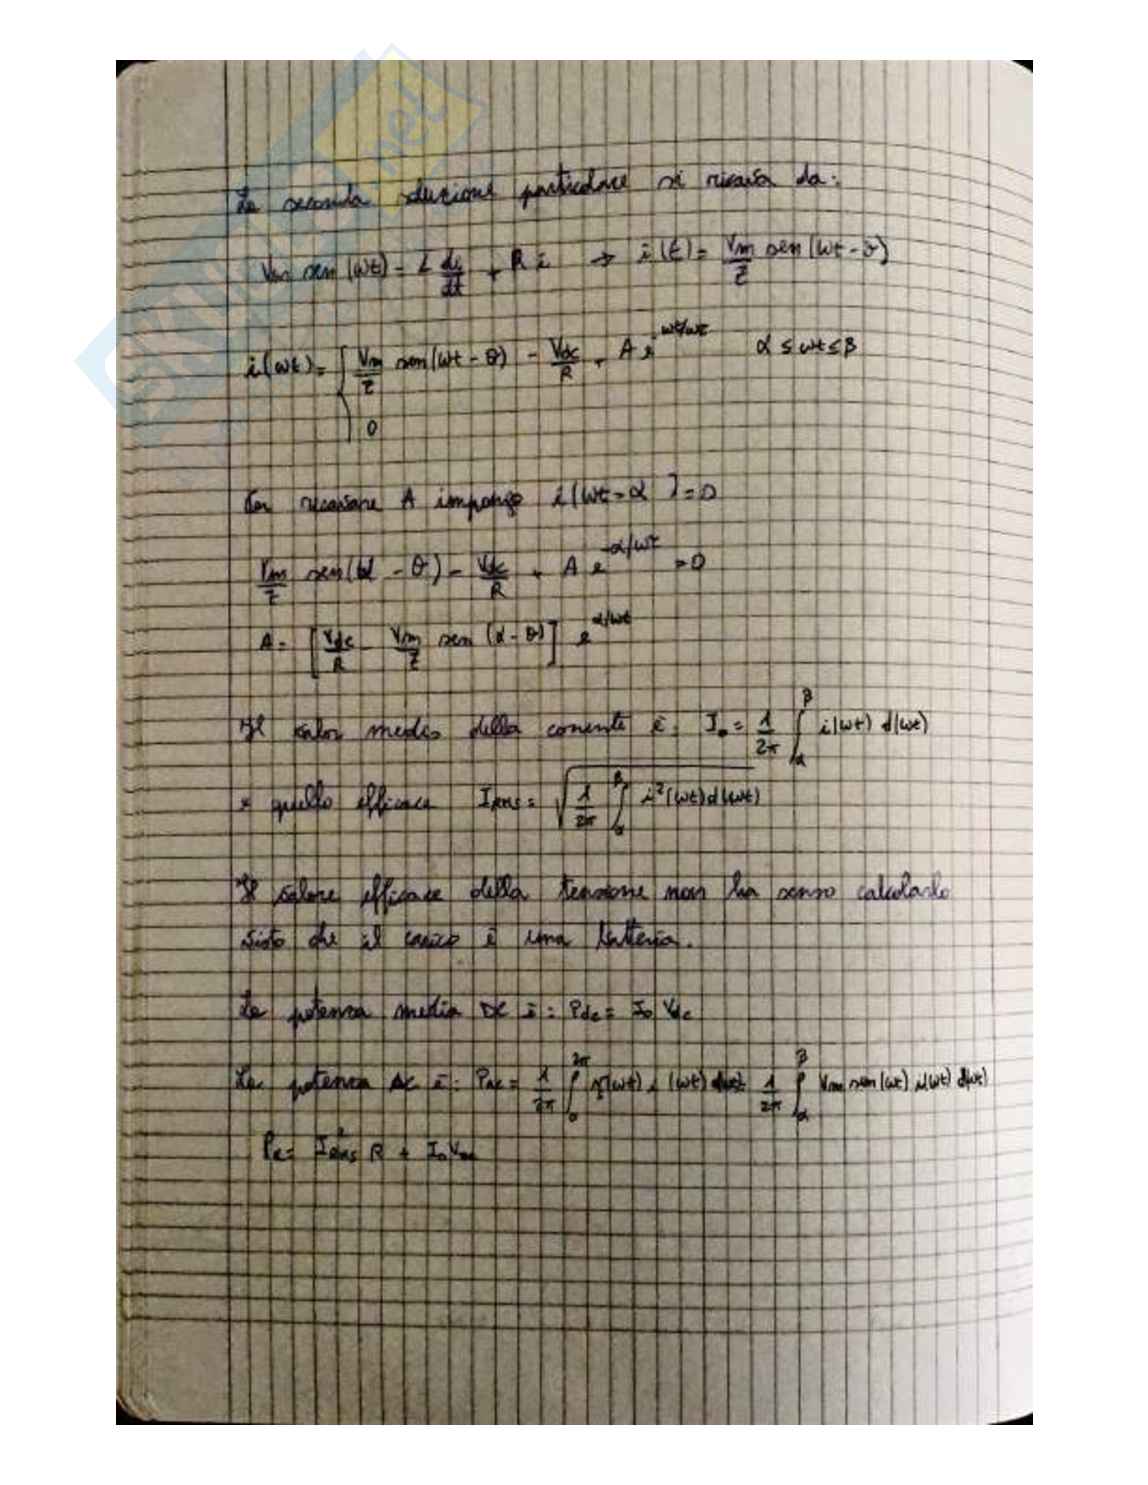 La seconda soluzione particolare si ricava da:
Vm sen(ωt) = L di/dt + R i → i(t) = Vm/Z sen(ωt - θ)
i(ωt) = { Vm/Z sen(ωt - θ) - Vdc/R + A e^-ωt/ωτ    α ≤ ωt ≤ β
0
Per ricavare A impongo i(ωt = α) = 0
Vm/Z sen(α - θ) - Vdc/R + A e^-α/ωτ = 0
A = [Vdc/R - Vm/Z sen(α - θ)] e^α/ωτ
Il valor medio della corrente è: Io = 1/2π ∫α^β i(ωt) d(ωt)
e quello efficace IRMS = √(1/2π ∫α^β i²(ωt) d(ωt))
Il valore efficace della tensione non ha senso calcolarlo
visto che il carico è una batteria.
La potenza media DC è: Pdc = Io Vdc
La potenza AC è: PAC = 1/2π ∫0^2π v(ωt) i(ωt) d(ωt) = 1/2π ∫α^β Vm sen(ωt) i(ωt) d(ωt)
I²RMS R + Io Vdc
SKUOLA.net